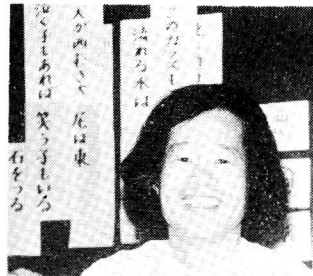 このカラスも
流れる水は
犬が西むきゃ 尾は東
泣く子もあれば 笑う子もいる
石をつる